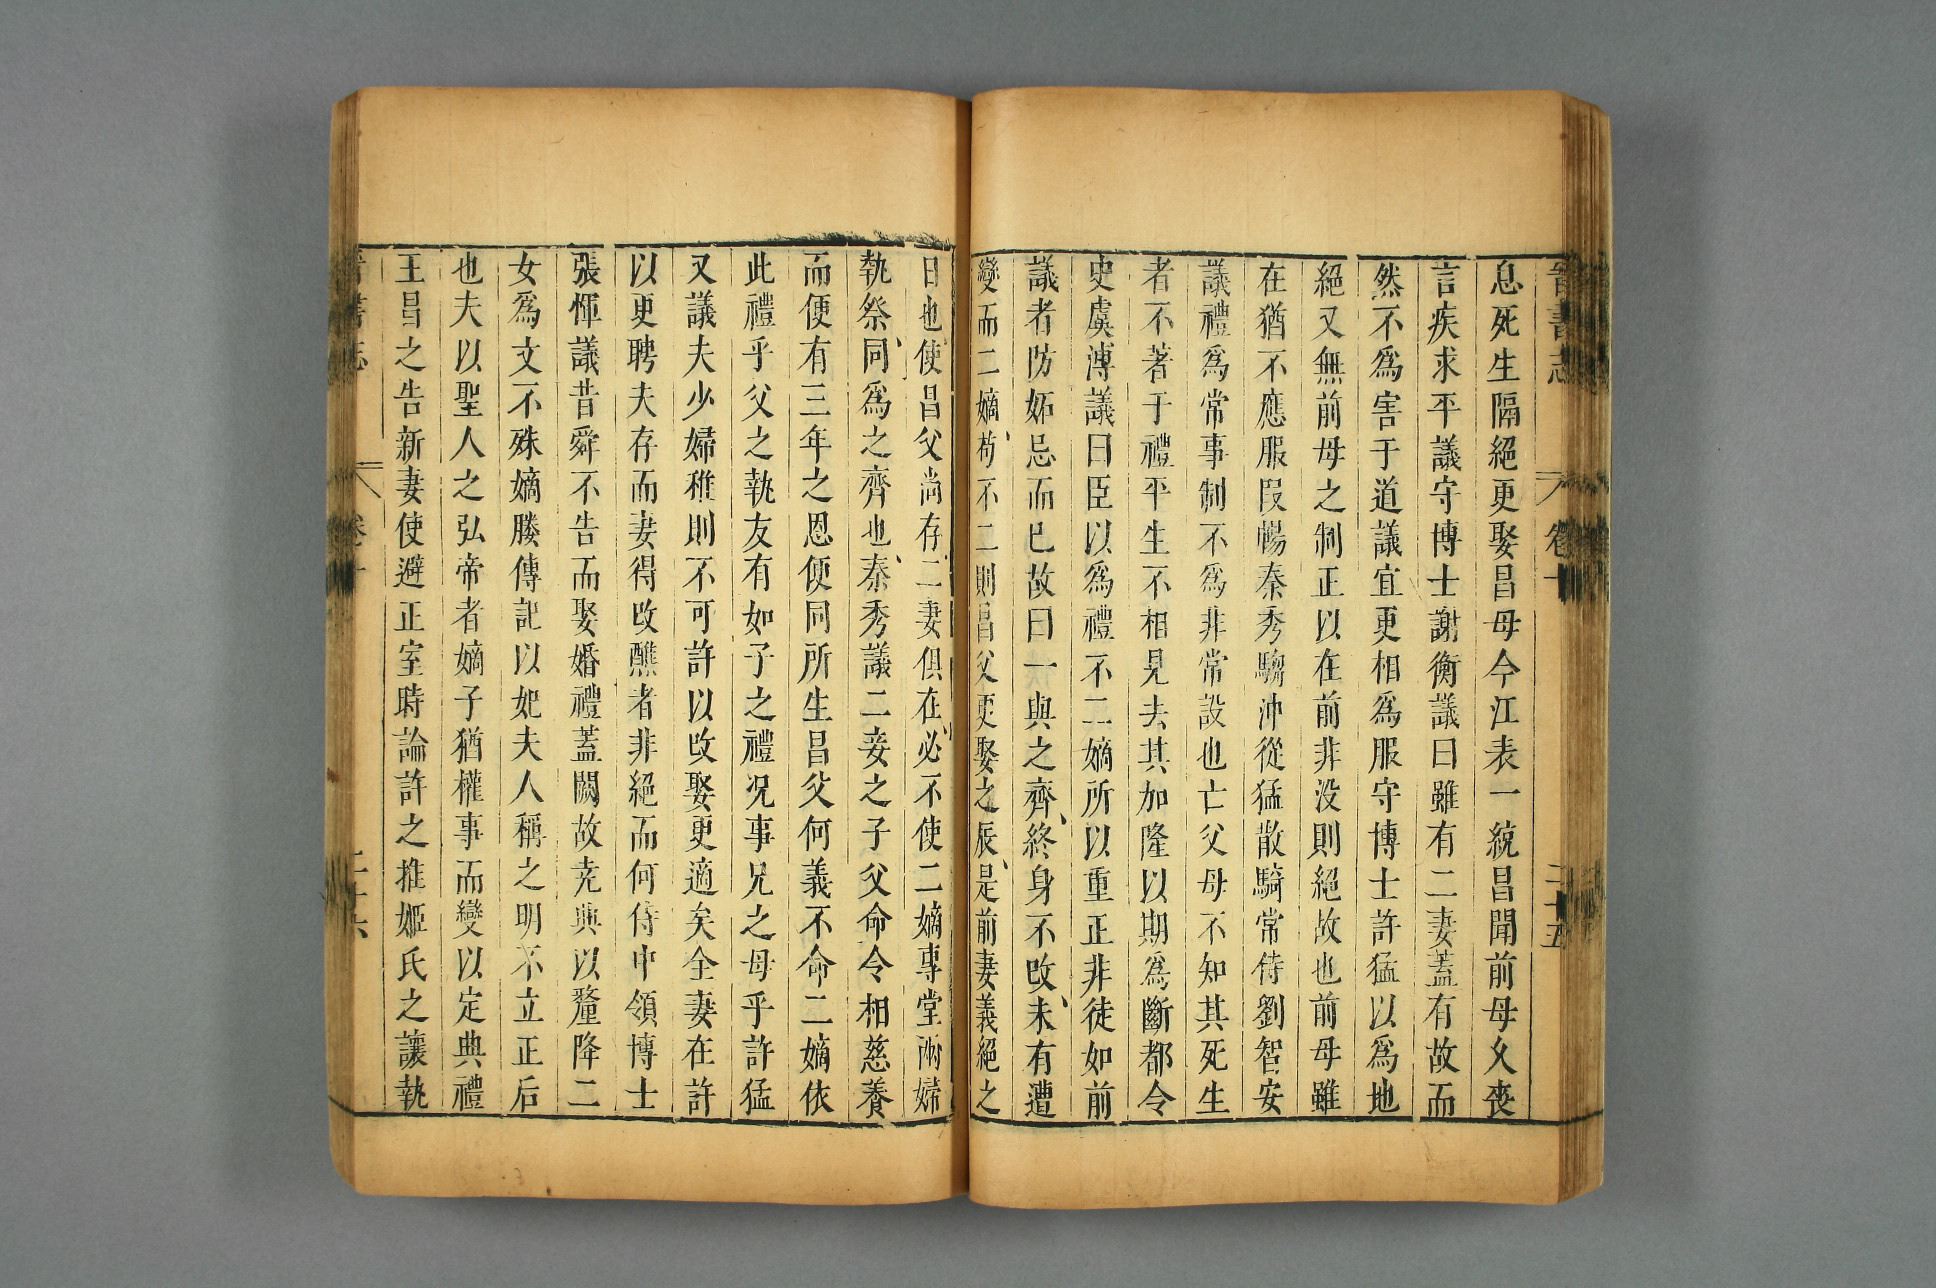 晉書志 卷十 二十五
息死生隔絕更娶昌母今江表一統昌聞前母久喪
言疾求平議守博士謝衡議曰雖有二妻蓋有故而
然不爲害于道議宜更相爲服守博士許猛以爲地
絕又無前母之制正以在前非没則絕故也前母雖
在猶不應服段暢秦秀騶沖從猛散騎常侍劉智安
議禮爲常事制不爲非常設也亡父母不知其死生
者不著于禮平生不相見去其加隆以期爲斷都令
史虞溥議曰臣以爲禮不二嫡所以重正非徒如前
議者防妬忌而已故曰一與之齊終身不改未有遭
變而二嫡苟不二則昌父更娶之辰是前妻義絕之
日也使昌父尚存二妻俱在必不使二嫡專堂兩婦
執祭同爲之齊也秦秀議二妾之子父命令相慈養
而便有三年之恩便同所生昌父何義不命二嫡依
此禮乎父之執友有如子之禮况事兄之母乎許猛
又議夫少婦稚則不可許以改娶更適矣全妻在許
以更聘夫存而妻得改醮者非絕而何侍中領博士
張惲議昔舜不告而娶婚禮蓋闕故尭典以釐降二
女爲文不殊嫡媵傳記以妃夫人稱之明不立正后
也夫以聖人之弘帝者嫡子猶權事而變以定典禮
王昌之告新妻使避正室時論許之推姬氏之讓執
晉書志 卷十 二十六